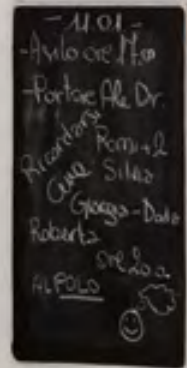 - 11.01 -
- Asilo ore 17.00
- Portare Ale Dr.
Ricordarsi
Romi + 2
Cena Silvia
Giorgia - Dario
Roberta
ore 20 a
AL POLO